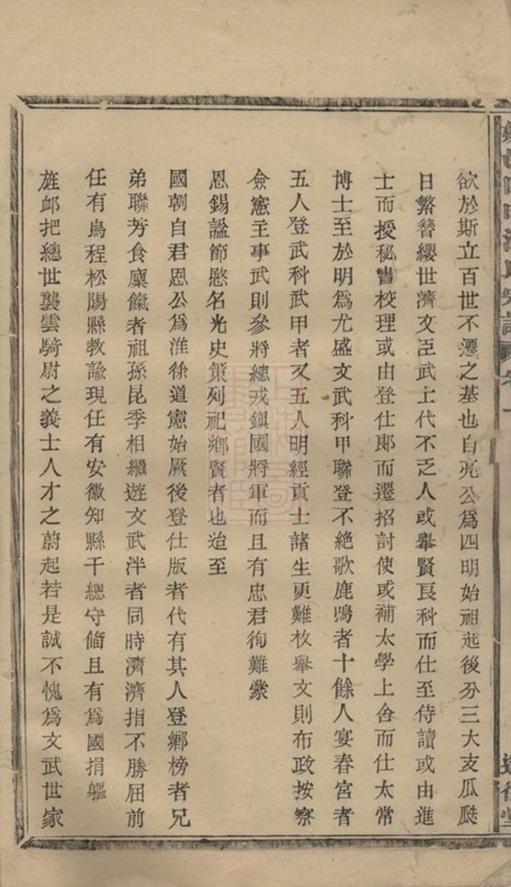 欲於斯立百世不遷之基也自亮公爲四明始祖起後分三大支瓜瓞
日繁簪纓世濟文臣武士代不乏人或舉賢良科而仕至侍讀或由進
士而授秘書校理或由登仕郎而遷招討使或補太學上舍而仕太常
博士至於明爲尤盛文武科甲聯登不絶歌鹿鳴者十餘人宴春宮者
五人登武科武甲者又五人明經貢士諸生更難枚舉文則布政按察
僉憲主事武則參將總戎鎮國將軍而且有忠君徇難蒙
恩錫謚節愍名光史策列祀鄉賢者也迨至
國朝自君恩公爲淮徐道憲始厥後登仕版者代有其人登鄉榜者兄
弟聯芳食廩餼者祖孫昆季相繼遊文武泮者同時濟濟指不勝屈前
任有烏程松陽縣教諭現任有安徽知縣千總守備且有爲國捐軀
旌卹把總世襲雲騎尉之義士人才之蔚起若是誠不愧爲文武世家